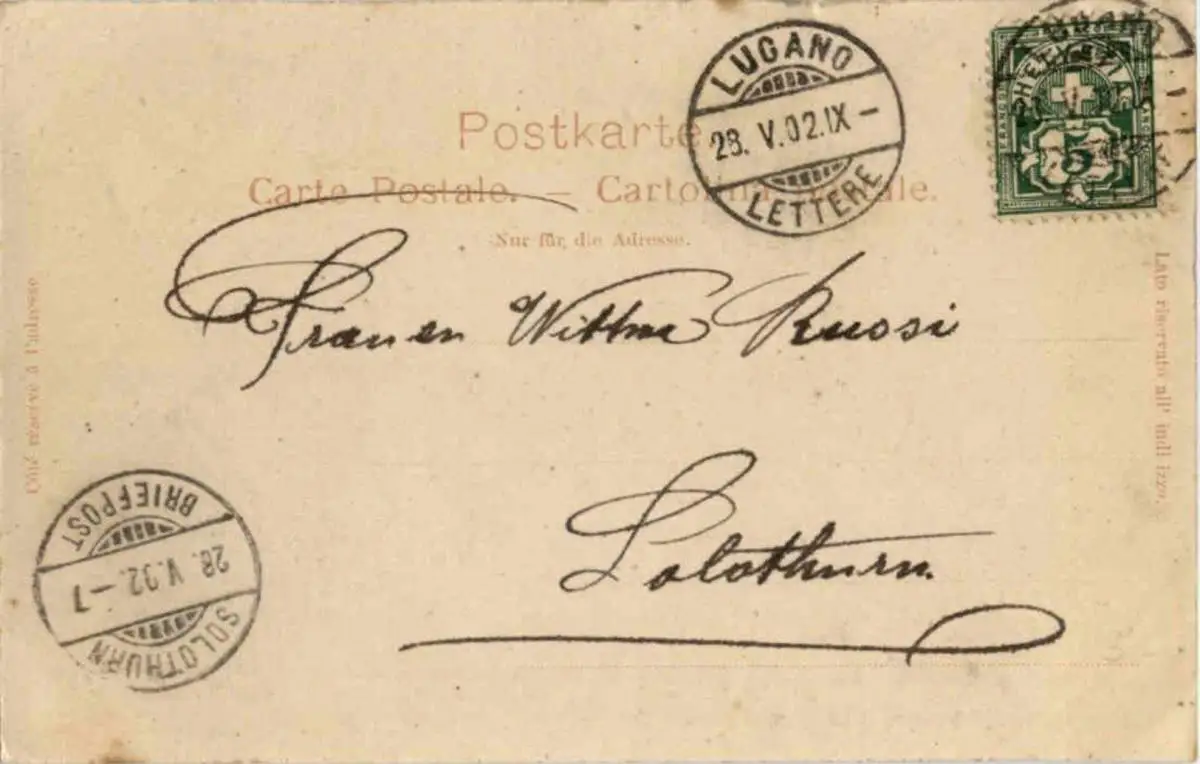 Postkarte
Carte Postale. — Cartolina postale.
Nur für die Adresse.
LUGANO
28. V.02.IX –
LETTERE
HELVETIA
FRANCO
5
Côté réservé à l'adresse
Lato riservato all' indirizzo.
Frauen Wittwe Ruosi
Solothurn.
SOLOTHURN
28. V.02.–7
BRIEFPOST